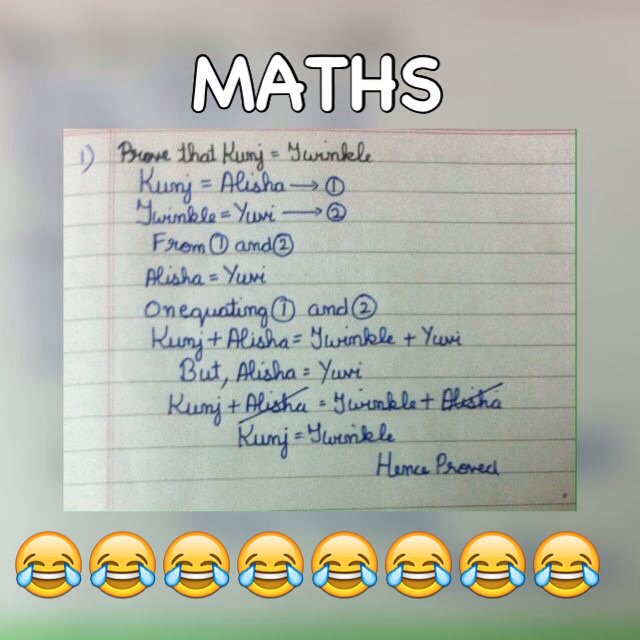 MATHS
1) Prove that Kunj = Twinkle
Kunj = Alisha → ①
Twinkle = Yuvi → ②
From ① and ②
Alisha = Yuvi
On equating ① and ②
Kunj + Alisha = Twinkle + Yuvi
But, Alisha = Yuvi
Kunj + Alisha = Twinkle + Alisha
Kunj = Twinkle
Hence Proved